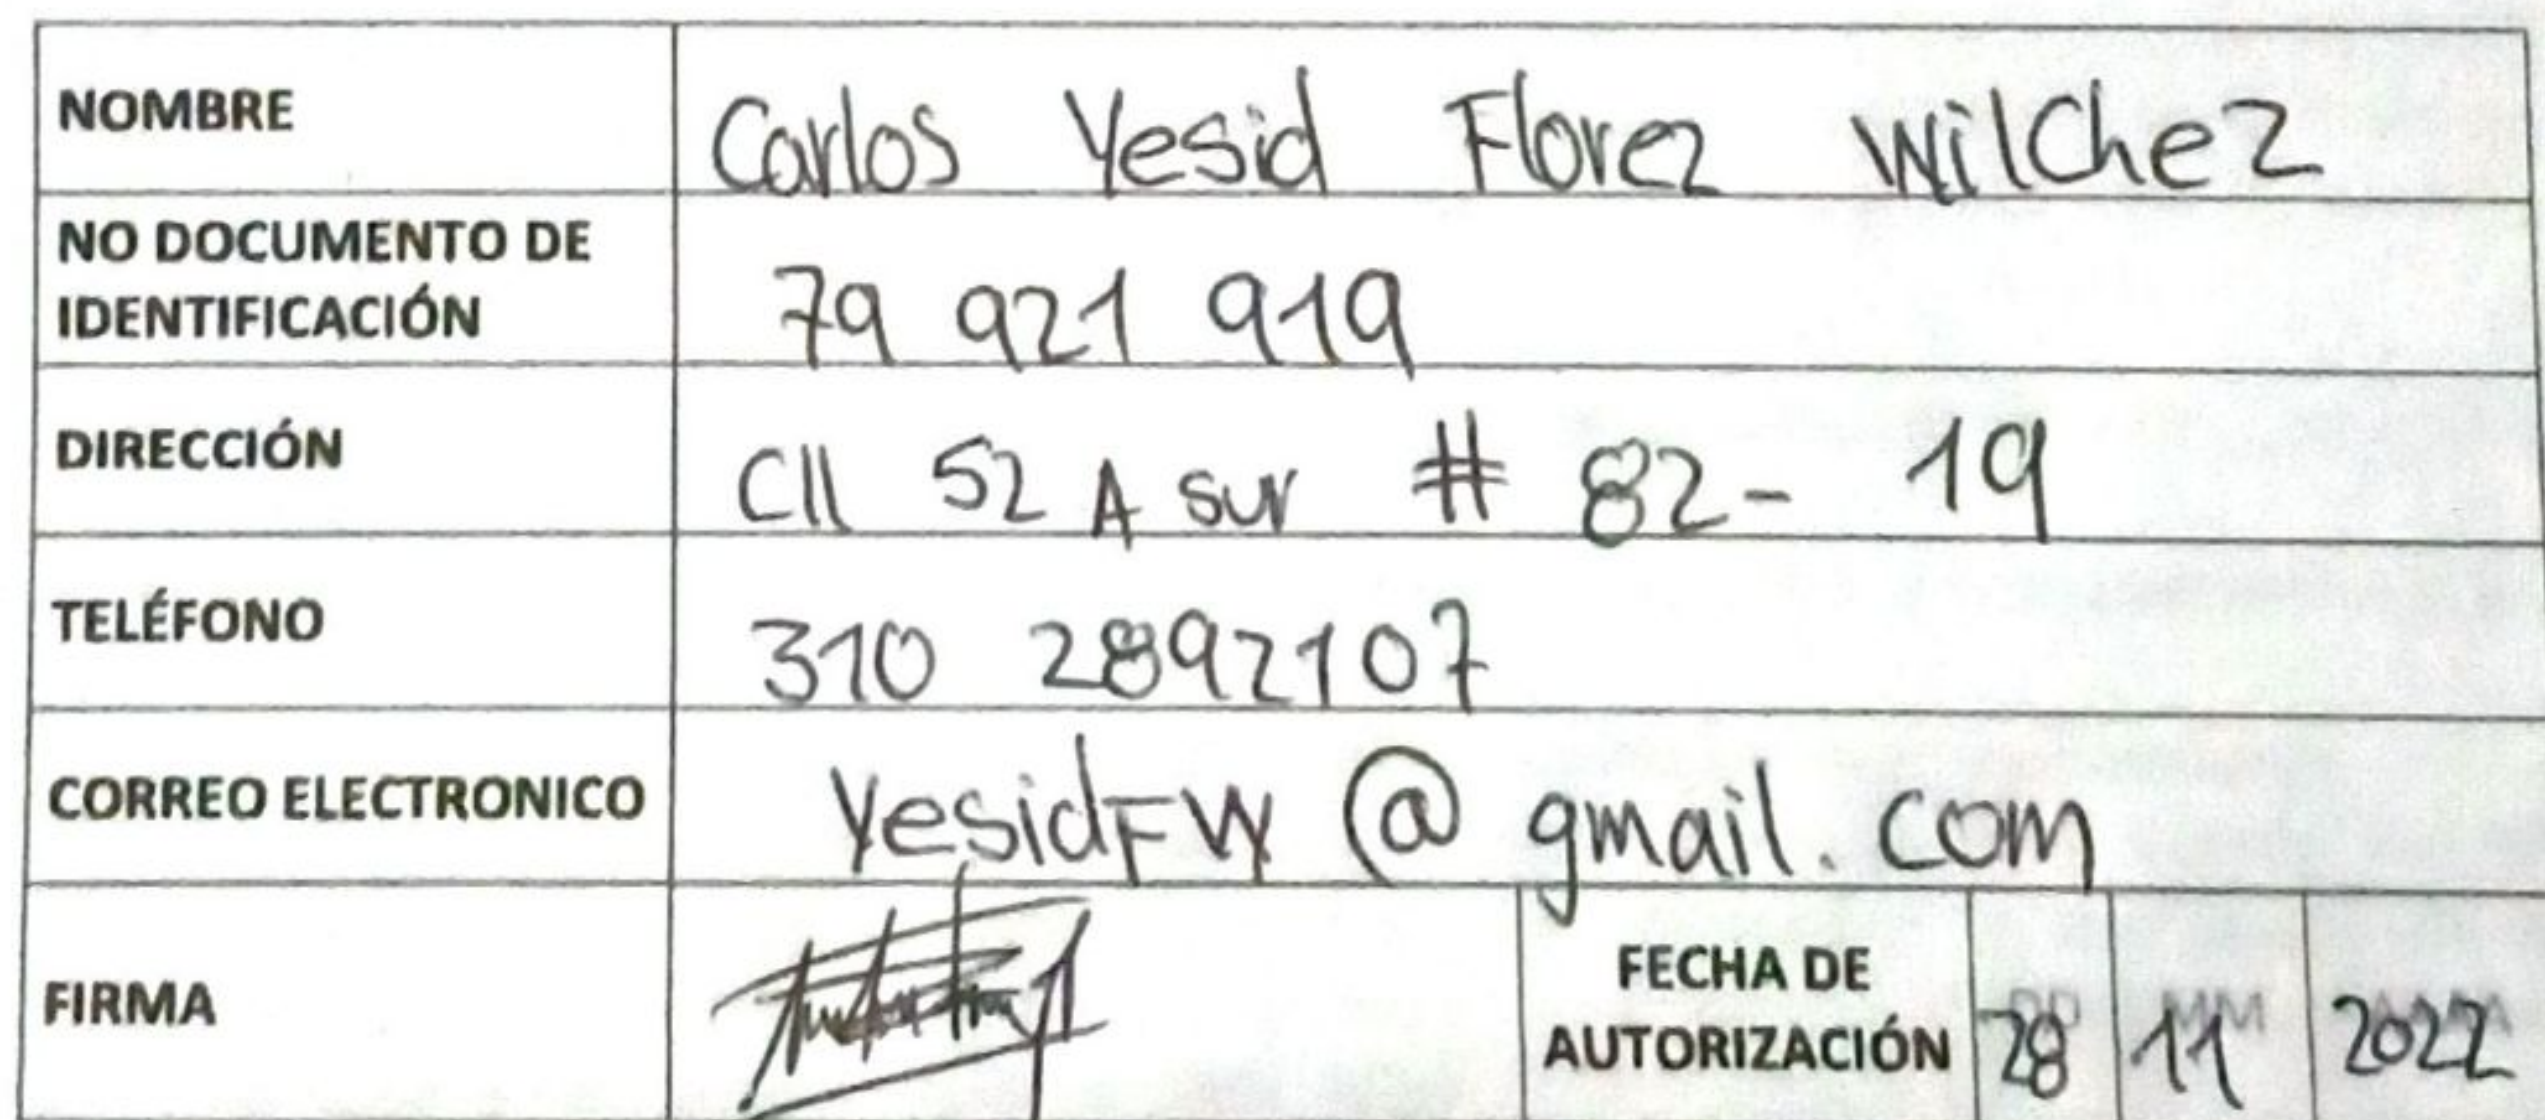 NOMBRE Carlos Yesid Florez WilChez
NO DOCUMENTO DE
IDENTIFICACIÓN 79 921 919
DIRECCIÓN Cll 52 A sur # 82 - 19
TELÉFONO 310 2892107
CORREO ELECTRONICO YesidFW @ gmail. com
FIRMA
FECHA DE
AUTORIZACIÓN DD MM AAAA
28 11 2022